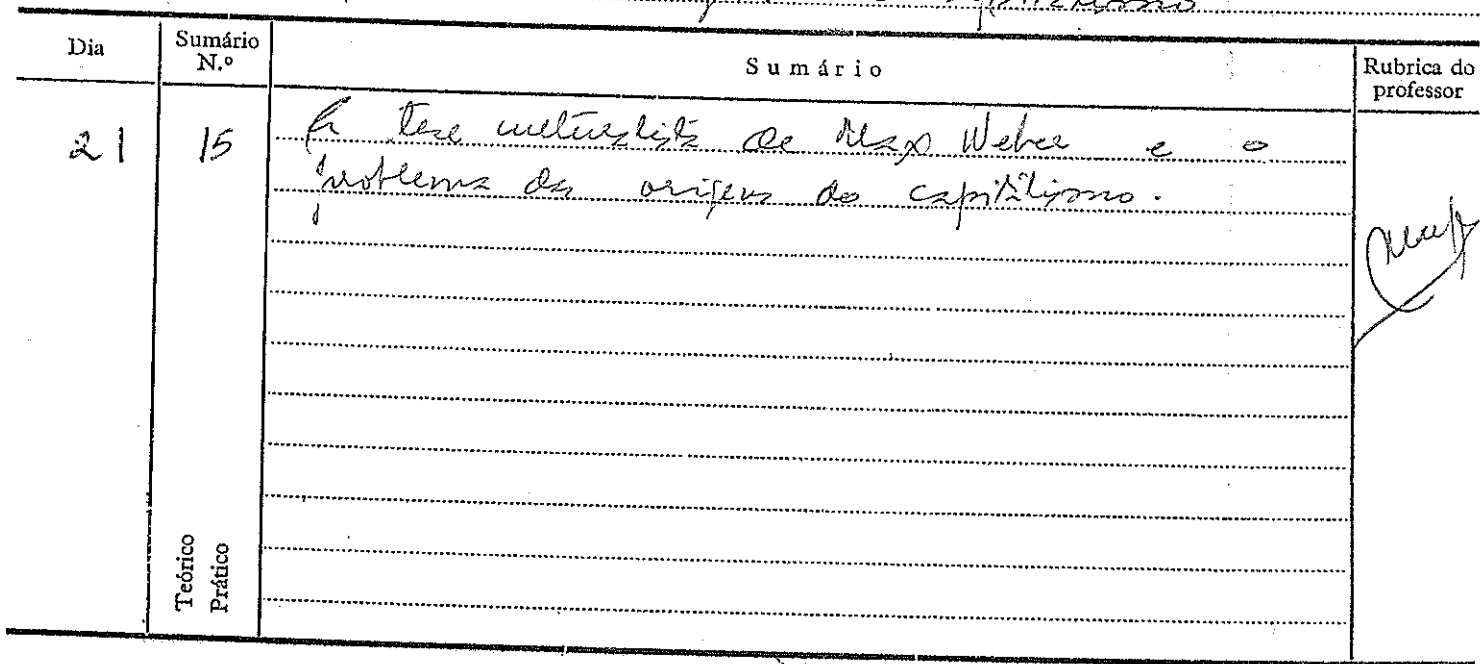 Dia
Sumário N.º
Sumário
Rubrica do professor
21
15
A tese culturalista de Max Weber e o
problema das origens do capitalismo.
Teórico
Prático